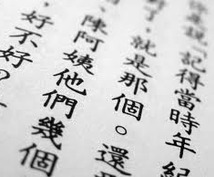 說「記得當時年紀
了，就是那個。還
，陳阿姨他們幾個
，好不好？